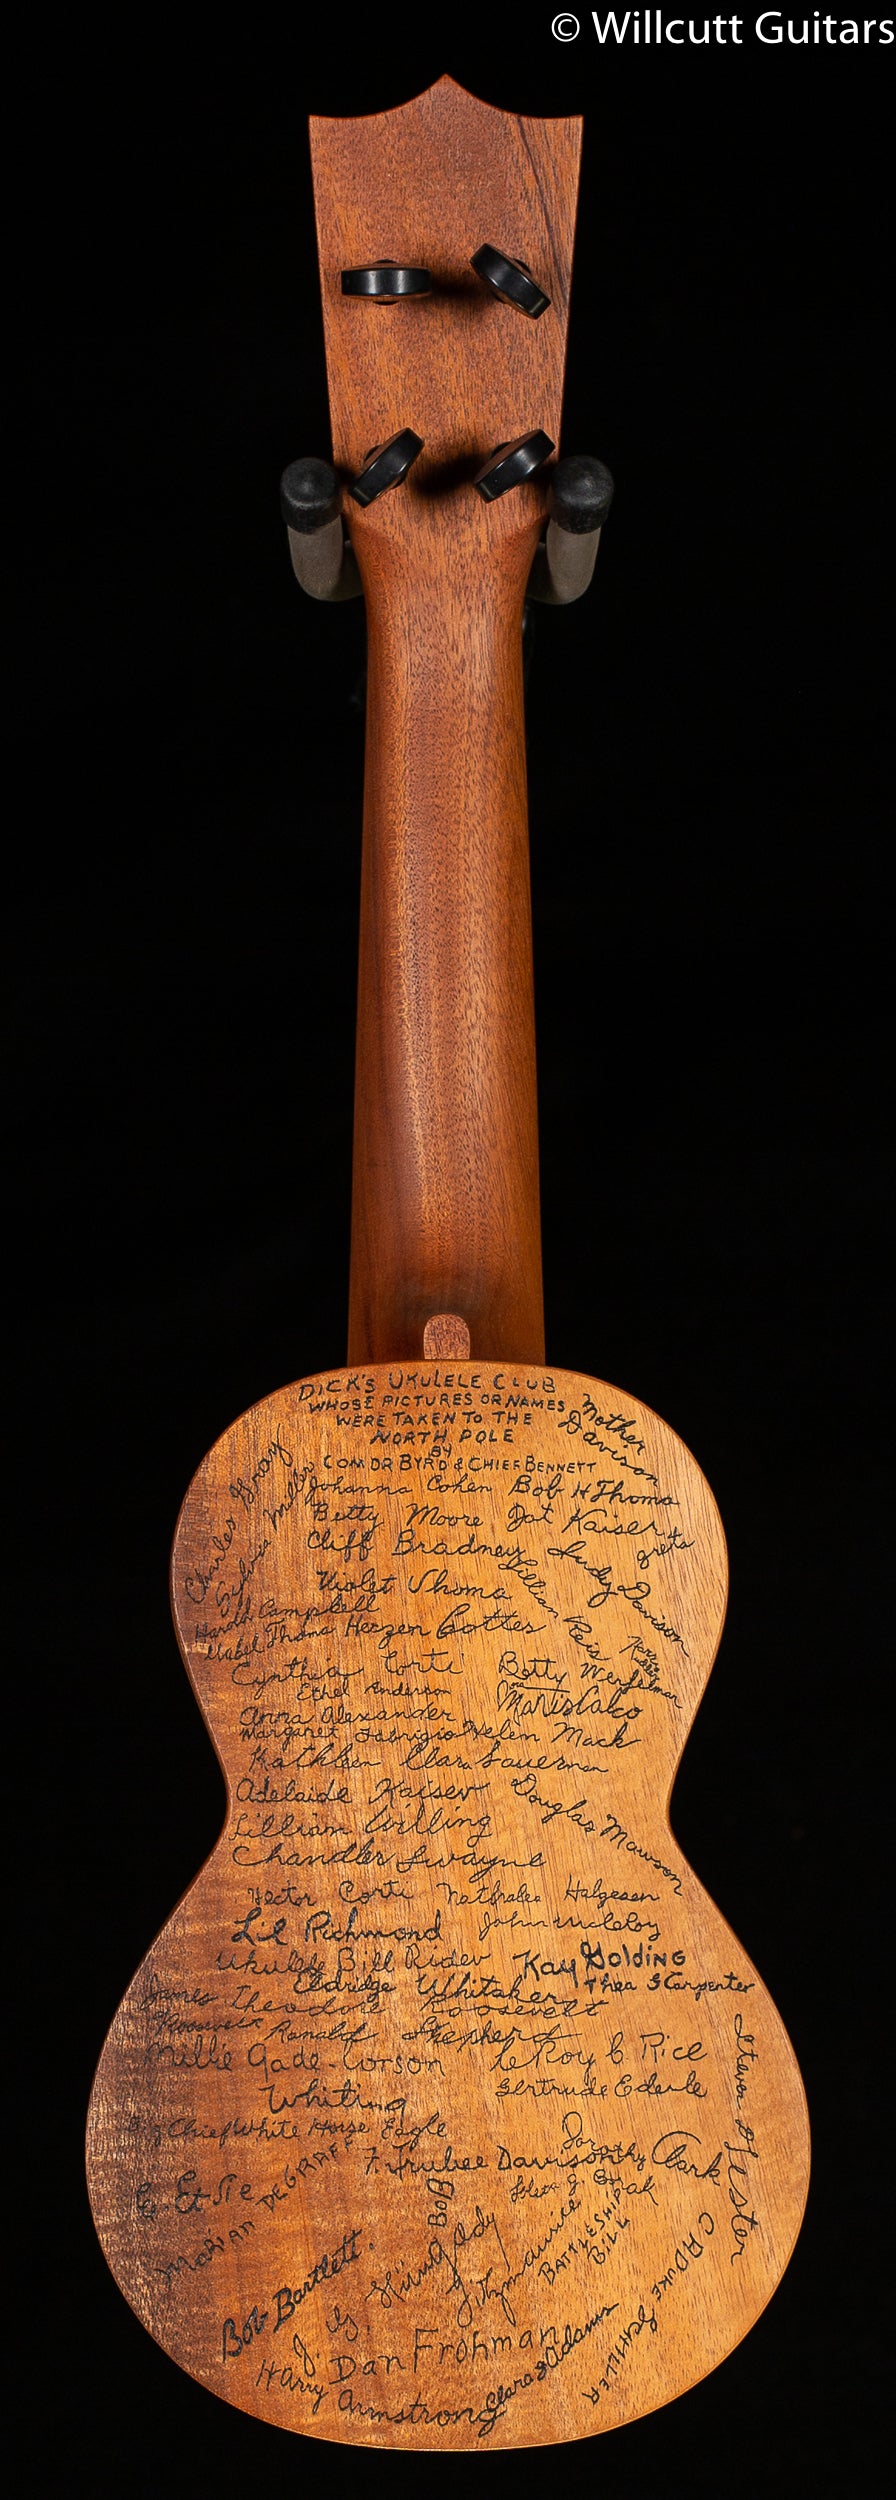 © Willcutt Guitars
DICK'S UKULELE CLUB
WHOSE PICTURES OR NAMES
WERE TAKEN TO THE
NORTH POLE
BY
COMDR BYRD & CHIEF BENNETT
Mother
Davison
Charles Gray
Sylvia Miller
Johanna Cohen
Bob H Thoma
Betty Moore
Pat Kaiser
Greta
Cliff Bradney
Judy Davison
Lillian Reis
Violet Thoma
Harold Campbell
Mabel Thoma
Herzen Cottes
Cynthia Corti
Betty Werfelman
Ethel Anderson
Anna Alexander
Margaret Fabrigio
Helen Mack
Kathleen Clara Sauerman
Adelaide Kaiser
Douglas Mawson
Lillian Willing
Chandler Swayne
Hector Corti
Nathalea Halgesen
Lil Richmond
John McCloy
Ukulele Bill Rider
Kay Golding
Eldridge Whitaker
Thea S Carpenter
James Theodore Roosevelt
Roosevelt Ronald Shepherd
Millie Gade-Corson
LeRoy C Rice
Whiting
Gertrude Ederle
Steven Lester
Big Chief White Horse Eagle
F. Trubee Davison
Dorothy Clark
Marian DeGraff
Bob
BATTLESHIP
BILL
Fitzmaurice
CARDUKE SCHILLER
Bob Bartlett.
Dan Frohman
Clara Adams
Harry Armstrong